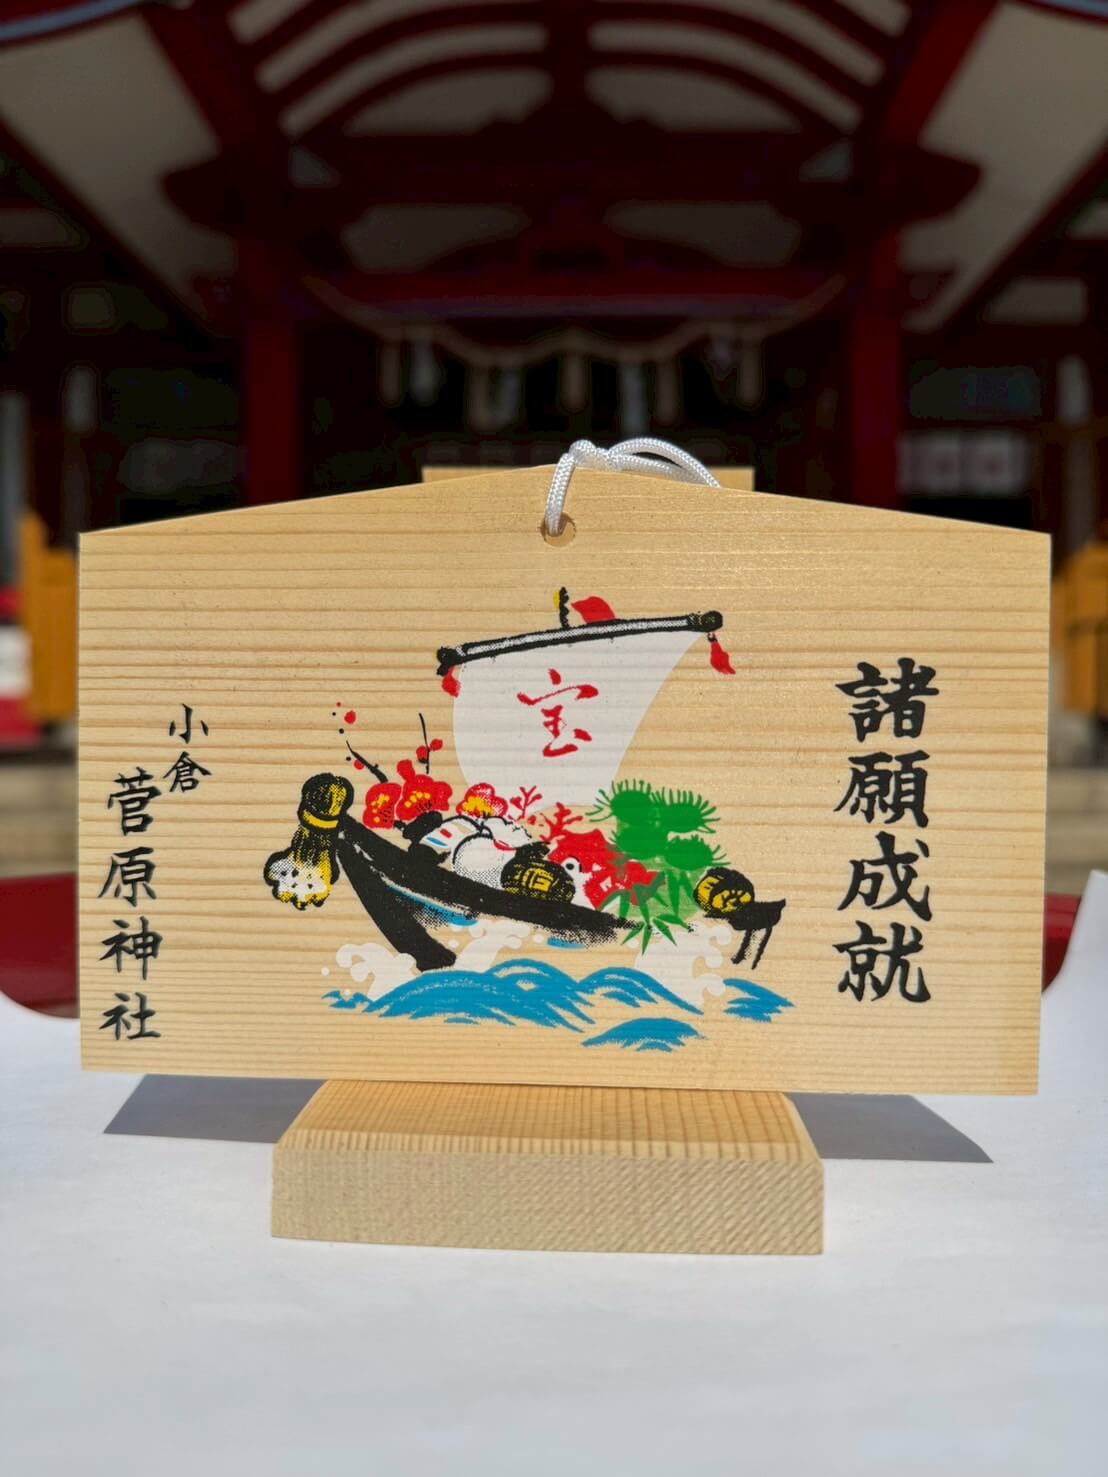 諸願成就
宝
小倉
菅原神社